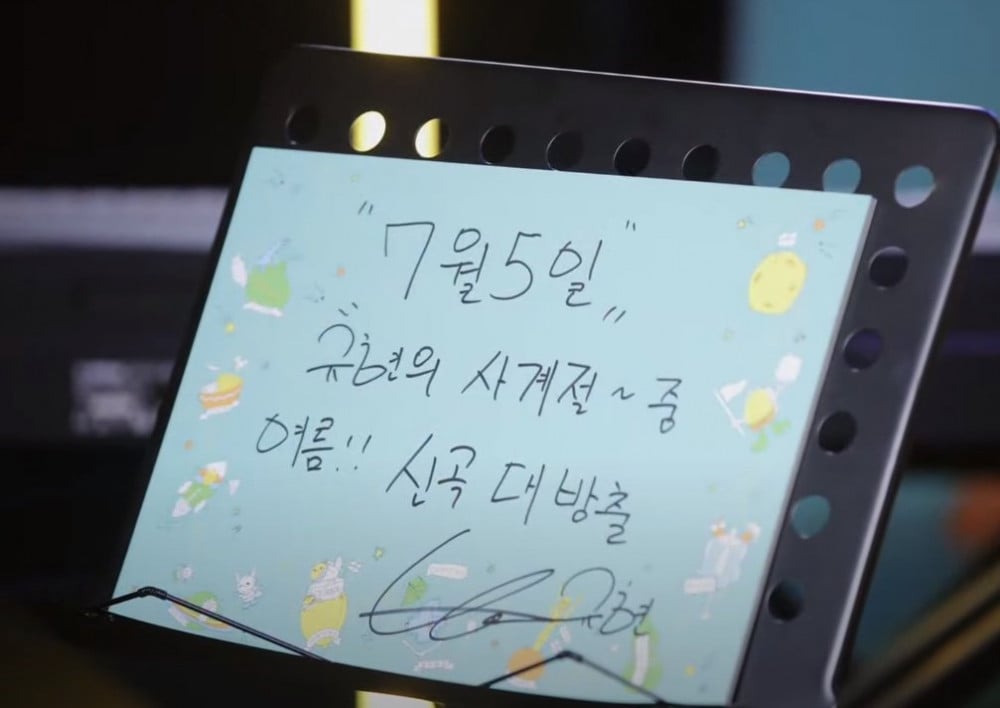 "7월5일"
규현의 사계절~중
여름!! 신곡 대 방출
규현